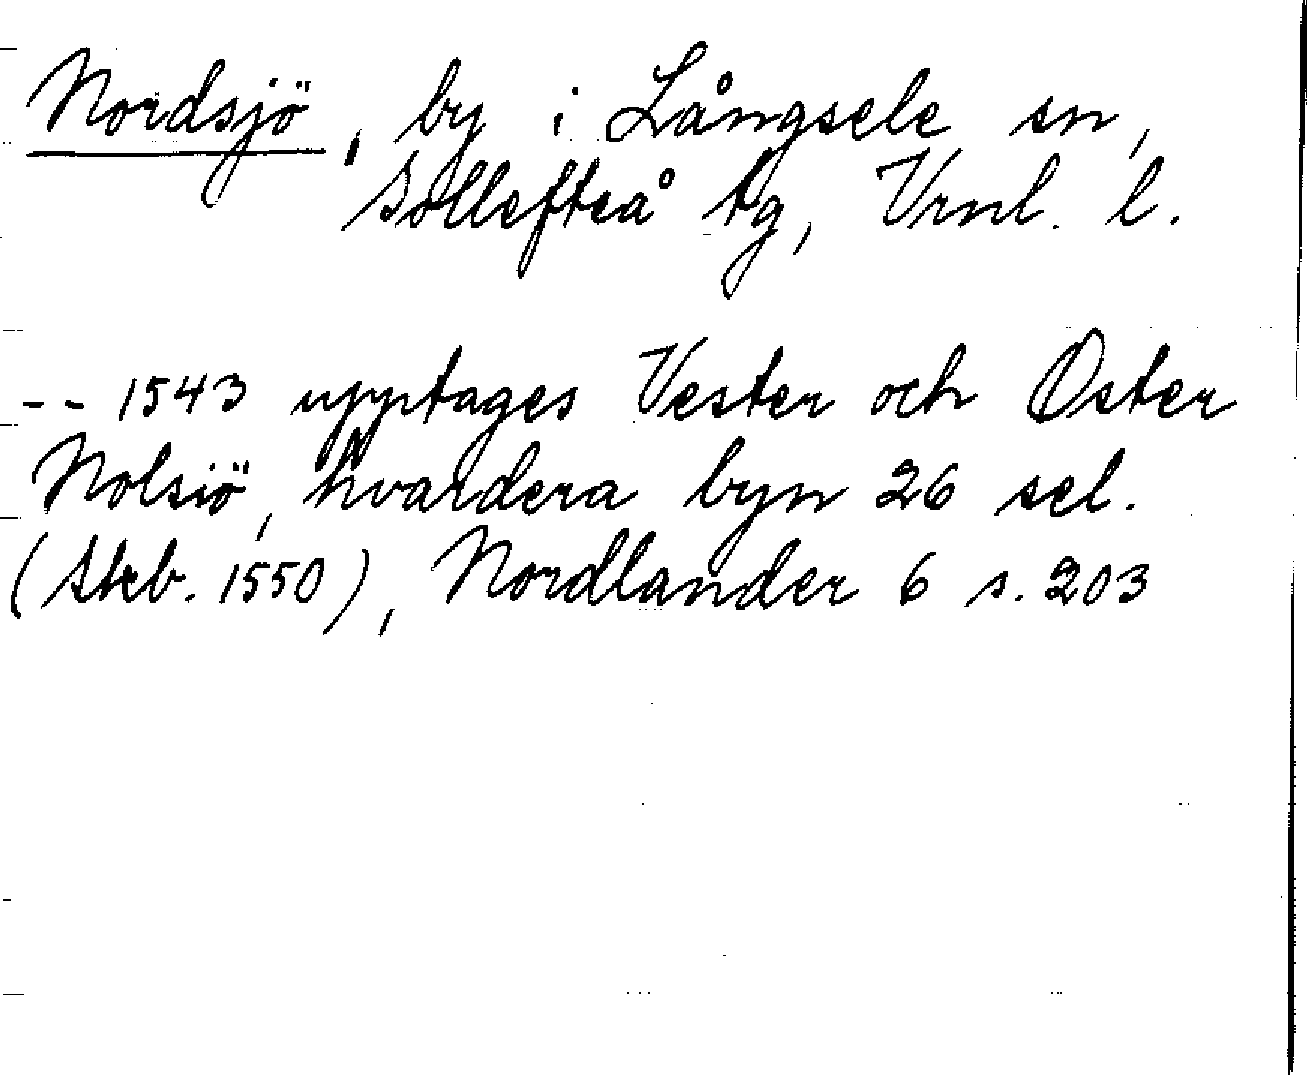 Nordsjö, by i Långsele sn,
Sollefteå tg, Vrnl. l.
-- 1543 upptages Vester och Öster
Nolsiö, hvardera byn 26 sel.
(Skb. 1550), Nordlander 6 s. 203